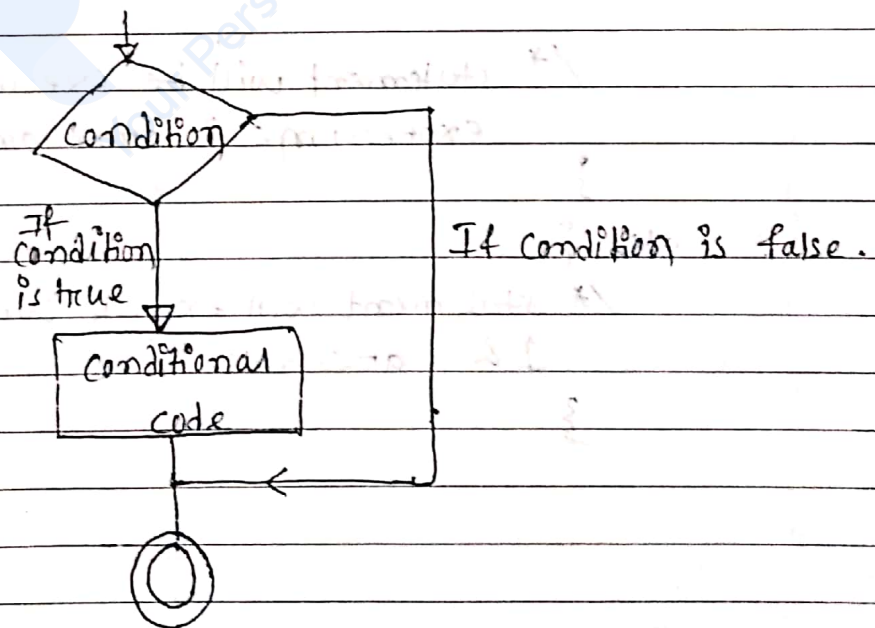 Your Pers
Condition
If
condition
is true
If condition is false.
Conditional
code